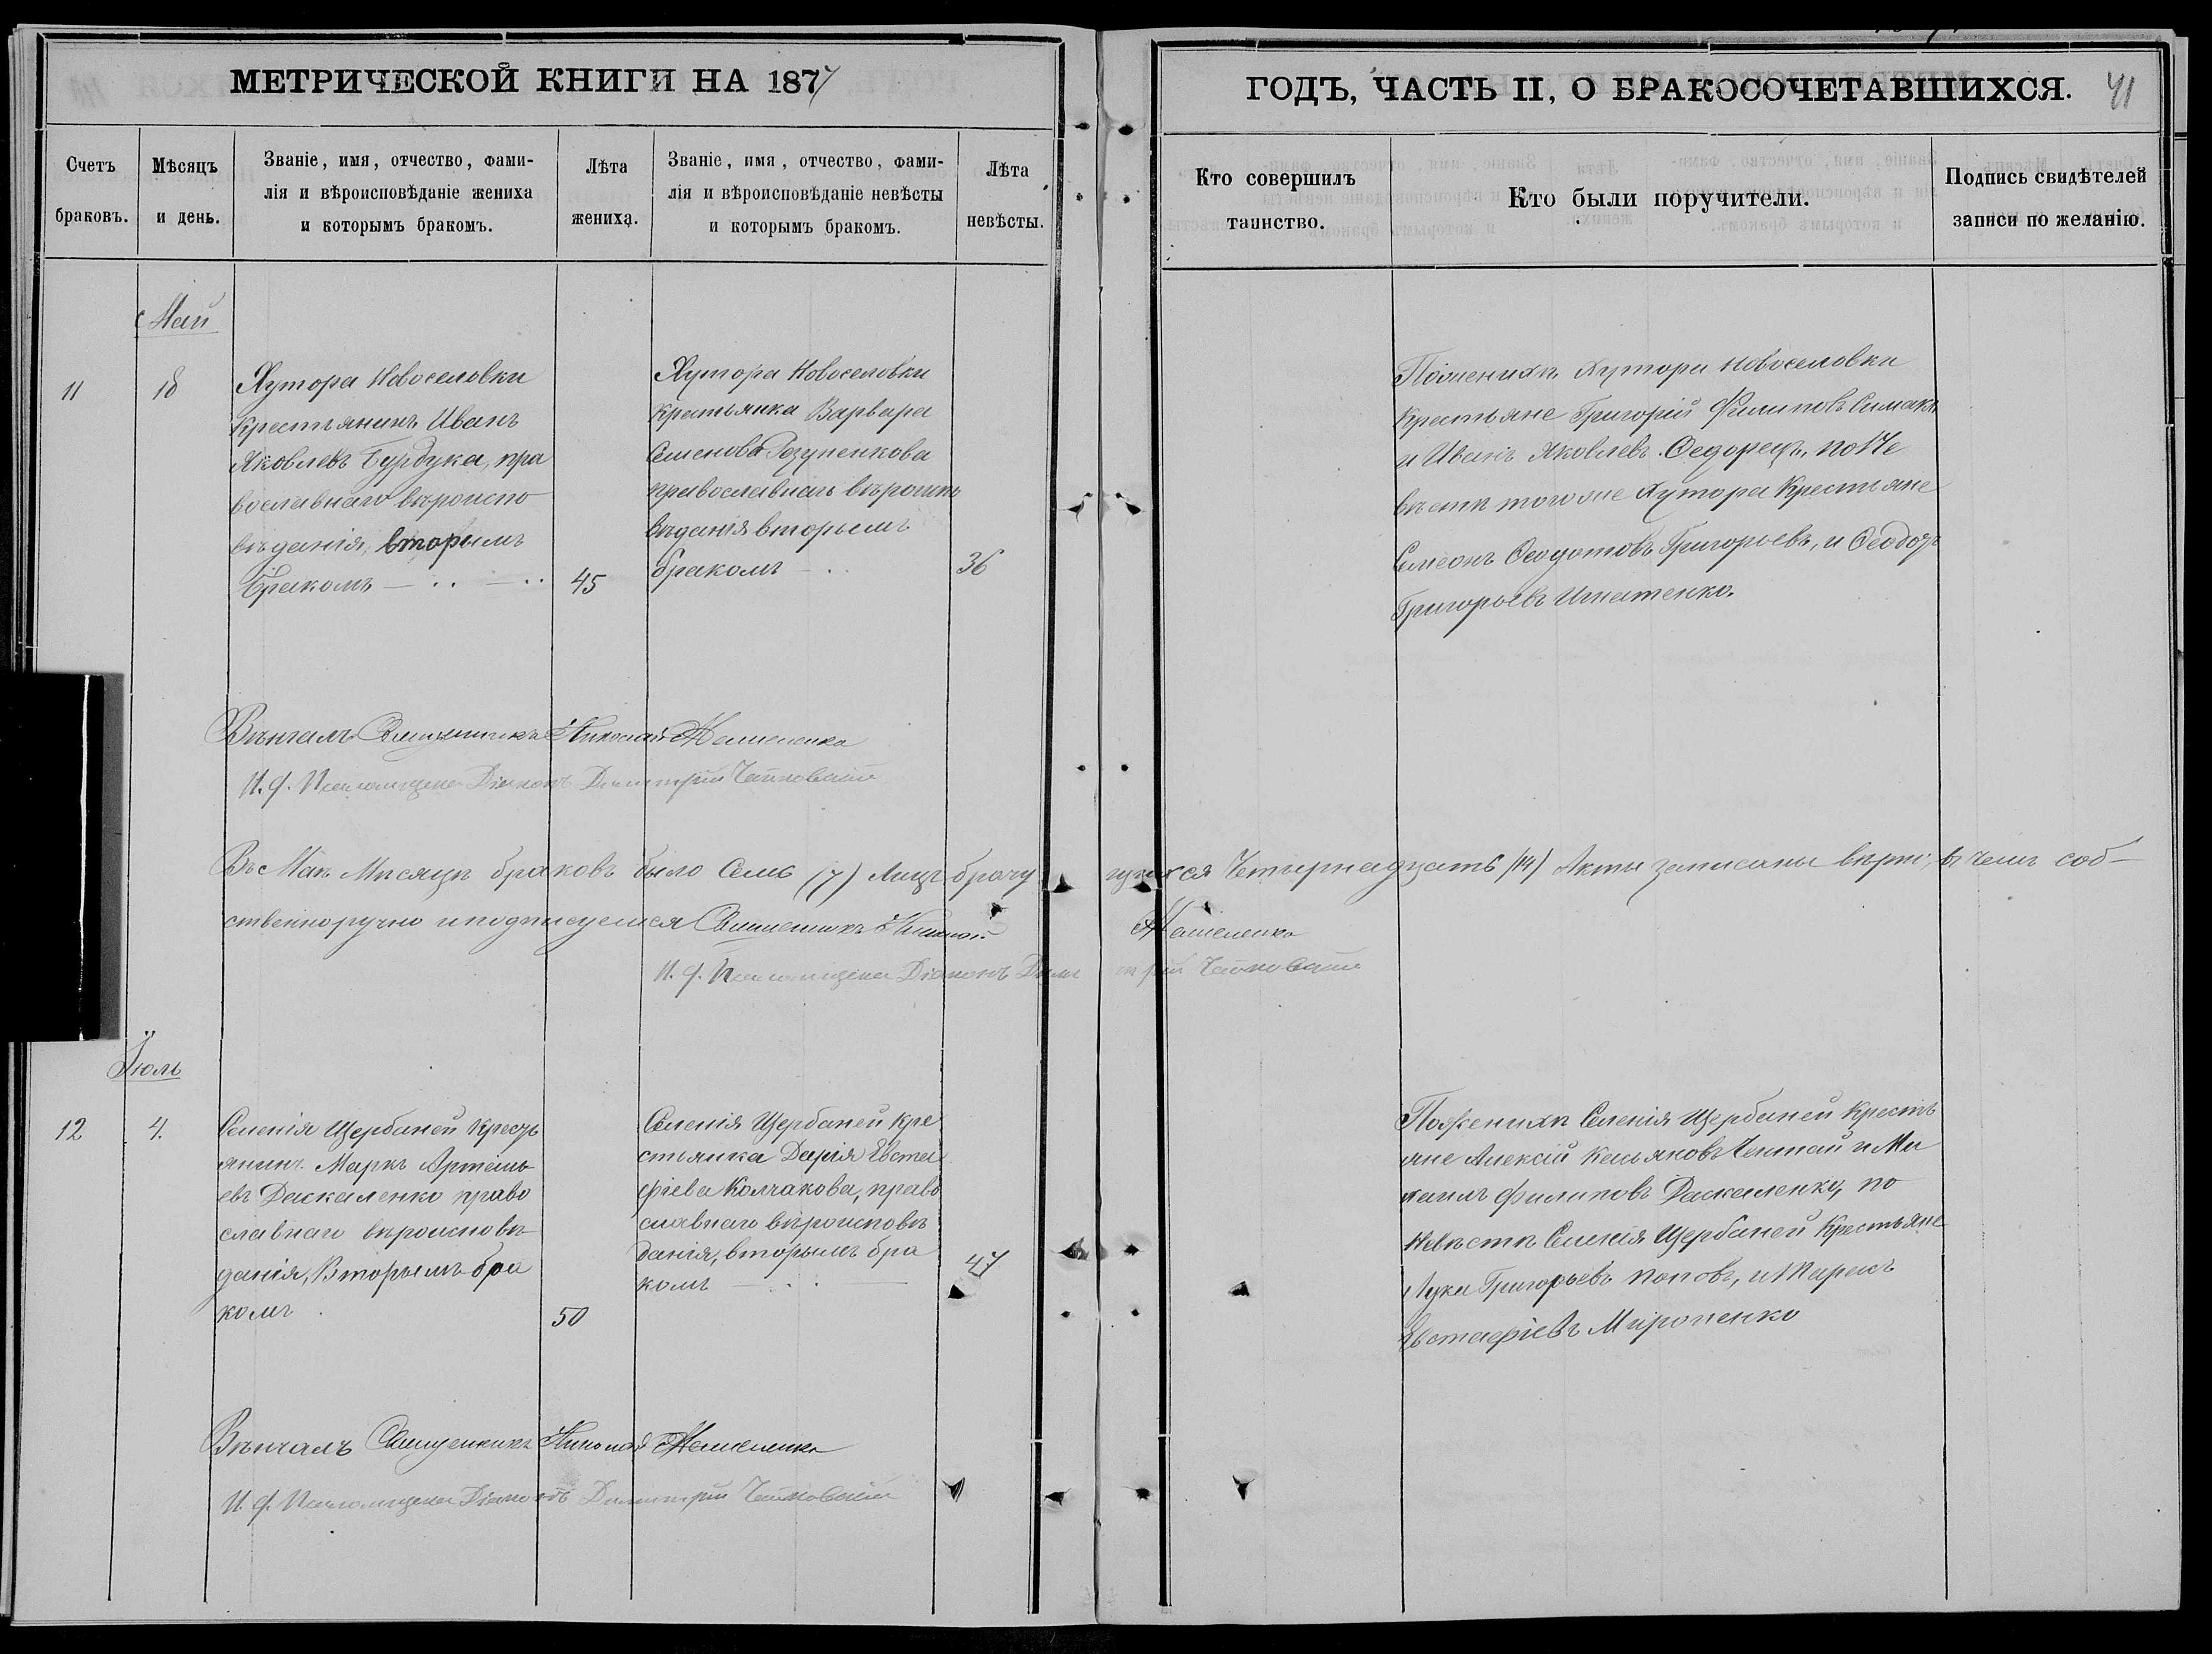 МЕТРИЧЕСКОЙ КНИГИ НА 1877
ГОДЪ, ЧАСТЬ II, О БРАКОСОЧЕТАВШИХСЯ.
41
Счетъ браковъ.
Мѣсяцъ и день.
Званіе, имя, отчество, фами-
лія и вѣроисповѣданіе жениха
и которымъ бракомъ.
Лѣта жениха.
Званіе, имя, отчество, фами-
лія и вѣроисповѣданіе невѣсты
и которымъ бракомъ.
Лѣта невѣсты.
Кто совершилъ таинство.
Кто были поручители.
Подпись свидѣтелей
записи по желанію.
Май
11
18
Хутора Новоселовки
Крестьянинъ Иванъ
Яковлевъ Бурдука, пра
вославнаго вѣроиспо
вѣданія, вторымъ
бракомъ
45
Хутора Новоселовки
крестьянка Варвара
Семенова
православнаго
вѣданія вторымъ
бракомъ
36
Хутора Новоселовки
Крестьяне Григорій Филиповъ Симакъ
и Иванъ Яковлевъ Федорецъ, по Не
вѣстѣ того же Хутора Крестьяне
Симеонъ Григорьевъ, и
Григорьевъ Игнатенко.
Вѣнчалъ Священникъ Николай
И. д. Псаломщика Діаконъ Димитрій
Въ Маѣ Мѣсяцѣ браковъ было Семь (7) Лицъ брачу
щихся Четырнадцать (14) Акты записаны вѣрно, въ чемъ соб-
ственноручно и подписуемся Священникъ Николай
И. д. Псаломщика Діаконъ Дими
трій
Іюль
12
4.
Селенія Щербаней Крест
янинъ Маркъ Артемь
евъ Даскаленко право
славнаго вѣроисповѣ
данія, Вторымъ бра
комъ
50
Селенія Щербаней кре
стьянка Дарія Евста
фіева Колчакова, право
славнаго вѣроисповѣ
данія, вторымъ бра
комъ
47
По женихѣ Селенія Щербаней Кресть
яне Алексій и Ми
хаилъ Филиповъ Даскаленко, по
Невѣстѣ Селенія Щербаней Крестьяне
Лука Григорьевъ Поповъ, и
Евстафіевъ Мироненко
Вѣнчалъ Священникъ Николай
И. д. Псаломщика Діаконъ Димитрій